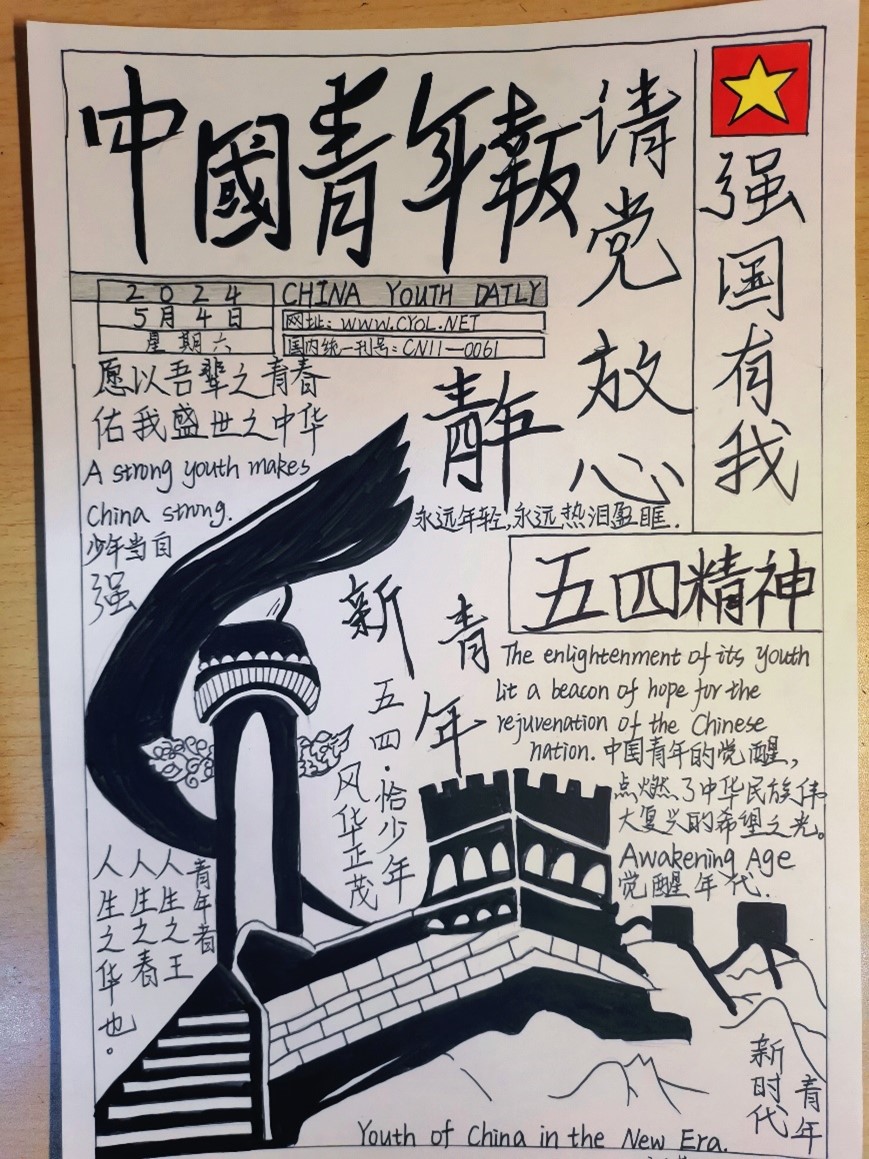 中國青年報
请党放心
强国有我
2024
5月4日
星期六
CHINA YOUTH DATLY
网址:WWW.CYOL.NET
国内统一刊号:CN11—0061
愿以吾辈之青春
佑我盛世之中华
A strong youth makes
China strong.
少年当自
强
青年
永远年轻,永远热泪盈眶.
五四精神
新青年
五四·恰少年
风华正茂
The enlightenment of its youth
lit a beacon of hope for the
rejuvenation of the Chinese
nation.中国青年的觉醒,
点燃了中华民族伟
大复兴的希望之光。
Awakening Age
觉醒年代.
青年者
人生之王
人生之春
人生之华也。
新时代
青年
Youth of China in the New Era.